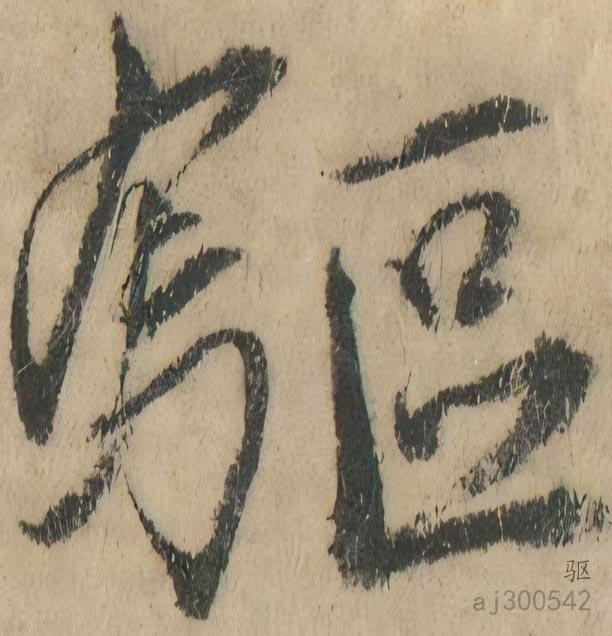 驅
驱
aj300542